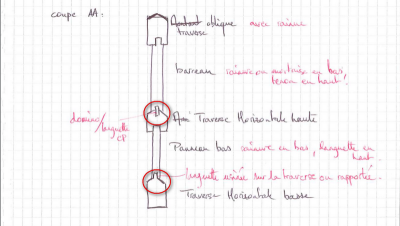 coupe AA:
oblique avec rainure
traverse
barreau rainure ou mortaise en bas,
tenon en haut.
domino/
languette
CP
Traverse Horizontale haute
Panneau bas rainure en bas, languette en
haut.
languette usinée sur la traverse ou rapportée.
Traverse Horizontale basse